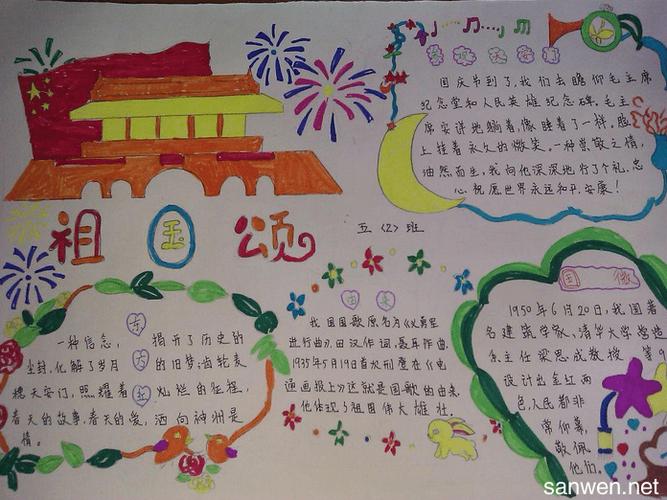 国庆节到了,我们去瞻仰毛主席
纪念堂和人民英雄纪念碑。毛主
席安详地躺着,像睡着了一样。脸
上挂着永久的微笑,一种崇敬之情,
油然而生,我向他深深地行了个礼,忠
心祝愿世界永远和平,安康!
祖国颂
五〈2〉班
东方红
一种信念, 揭开了历史的
尘封,化解了岁月 的旧梦;齿轮麦
穗天安门,照耀着 灿烂的征程,
春天的故事,春天的爱,洒向神州是
情。
由来
我国国歌原名为《义勇军
进行曲》,田汉作词,聂耳作曲.
1935年5月19日首次刊登在《电
通画报上》这就是国歌的由来.
他体现了祖国伟大雄壮.
国徽
1950年6月20日,我国著
名建筑学家,清华大学营造
系主任梁思成教授
设计出金红两
色,人民都非
常仰慕
敬佩
他们。
sanwen.net